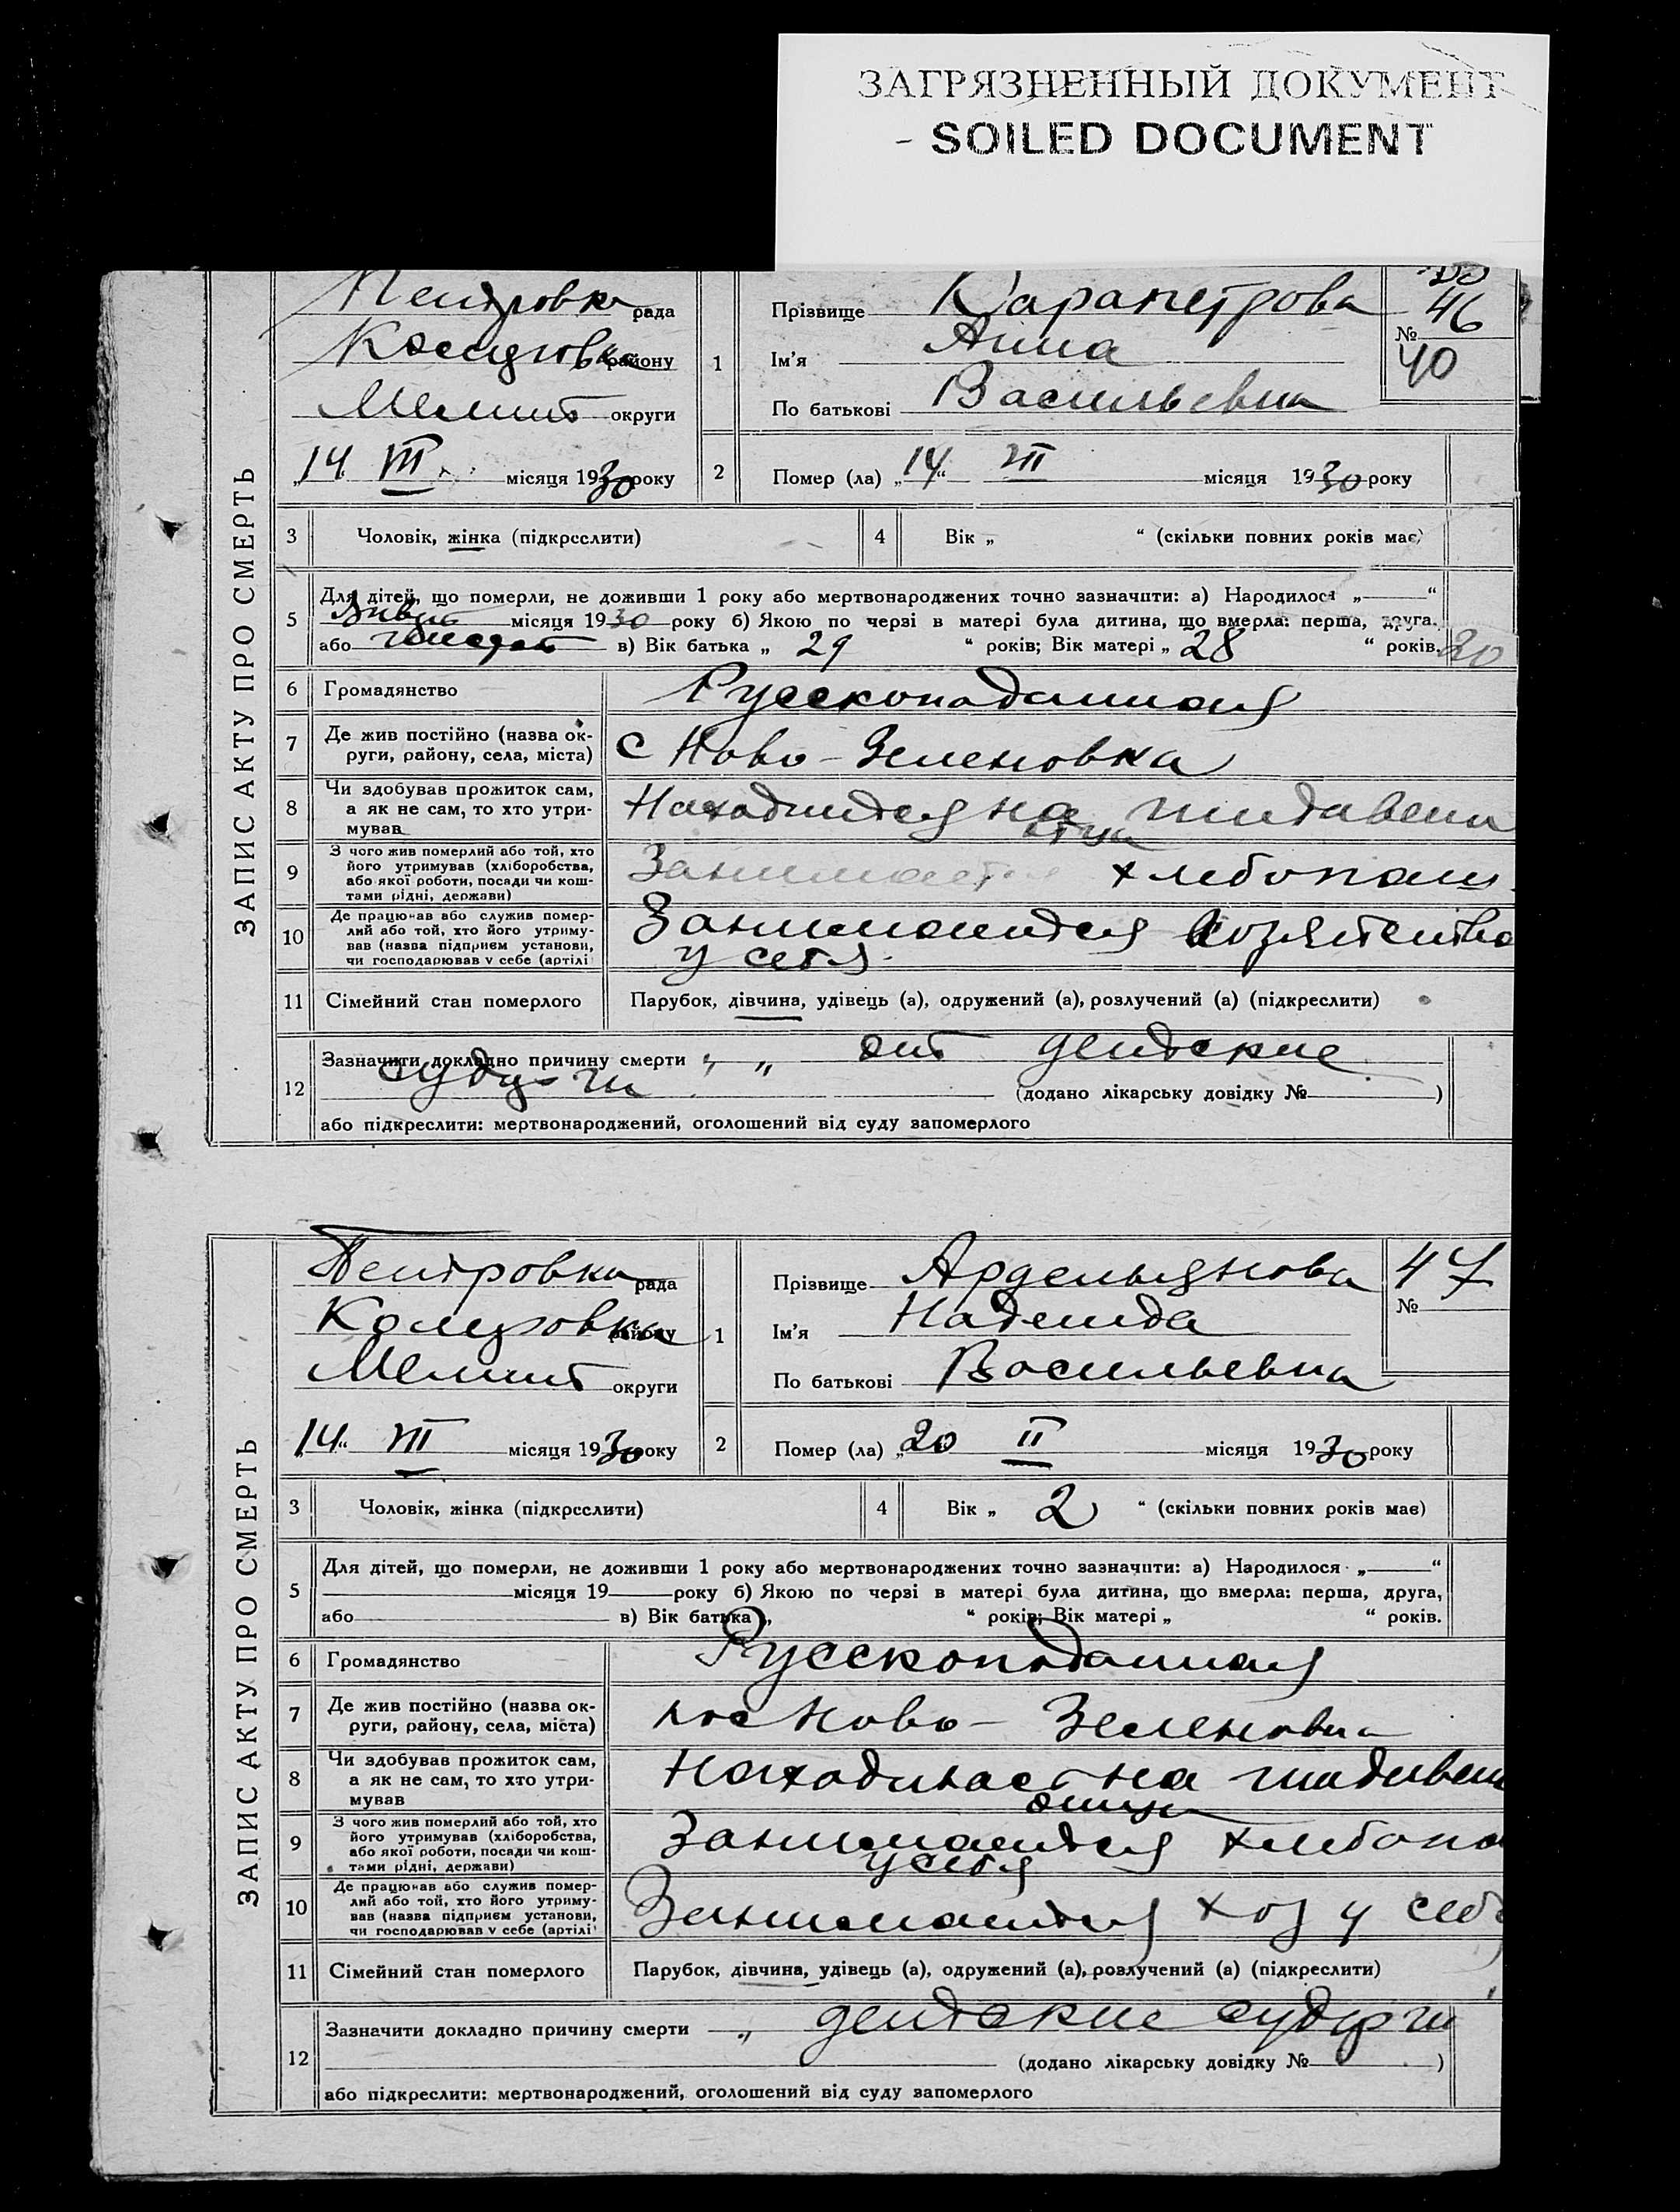 ЗАГРЯЗНЕННЫЙ ДОКУМЕНТ
- SOILED DOCUMENT
ЗАПИС АКТУ ПРО СМЕРТЬ
Петровка рада
району
Мелит округи
„14“ III місяця 1930 року
1
Прізвище Карапетрова
Ім’я Анна
По батькові Васильевна
46
№
40
2
Помер (ла) „14“ III місяця 1930 року
3 Чоловік, жінка (підкреслити)
4 Вік „ “ (скільки повних років має)
5
Для дітей, що померли, не доживши 1 року або мертвонароджених точно зазначити: а) Народилося „ “
місяця 1930 року б) Якою по черзі в матері була дитина, що вмерла: перша, друга,
або в) Вік батька „ 29 “ років; Вік матері „ 28 “ років. 20
6 Громадянство Русскоподанная
7 Де жив постійно (назва округи, району, села, міста) с Ново-Зеленовка
8 Чи здобував прожиток сам, а як не сам, то хто утримував Находится на
9 З чого жив померлий або той, хто його утримував (хліборобства, або якої роботи, посади чи коштами рідні, держави) Занимается хлебопаш
10 Де працював або служив померлий або той, хто його утримував (назва підприєм установи, чи господарював у себе (артілі Занимается
у себя.
11 Сімейний стан померлого Парубок, дівчина, удівець (а), одружений (а), розлучений (а) (підкреслити)
12
Зазначити докладно причину смерти „ „ от детские
(додано лікарську довідку № )
або підкреслити: мертвонароджений, оголошений від суду запомерлого
ЗАПИС АКТУ ПРО СМЕРТЬ
Петровка рада
району
Мелит округи
„14“ III місяця 1930 року
1
Прізвище Ардельянова
Ім’я Надежда
По батькові Васильевна
47
№
2
Помер (ла) „20 II місяця 1930 року
3 Чоловік, жінка (підкреслити)
4 Вік „ 2 “ (скільки повних років має)
5
Для дітей, що померли, не доживши 1 року або мертвонароджених точно зазначити: а) Народилося „ “
місяця 19 року б) Якою по черзі в матері була дитина, що вмерла: перша, друга,
або в) Вік батька „ “ років; Вік матері „ “ років.
6 Громадянство Русскоподанная
7 Де жив постійно (назва округи, району, села, міста) пос Ново-Зеленовка
8 Чи здобував прожиток сам, а як не сам, то хто утримував Находилась на
отца
9 З чого жив померлий або той, хто його утримував (хліборобства, або якої роботи, посади чи коштами рідні, держави) Занимается хлебопа
у себя
10 Де працював або служив померлий або той, хто його утримував (назва підприєм установи, чи господарював у себе (артілі Занимается хоз у себ
11 Сімейний стан померлого Парубок, дівчина, удівець (а), одружений (а), розлучений (а) (підкреслити)
12
Зазначити докладно причину смерти „ детские
(додано лікарську довідку № )
або підкреслити: мертвонароджений, оголошений від суду запомерлого